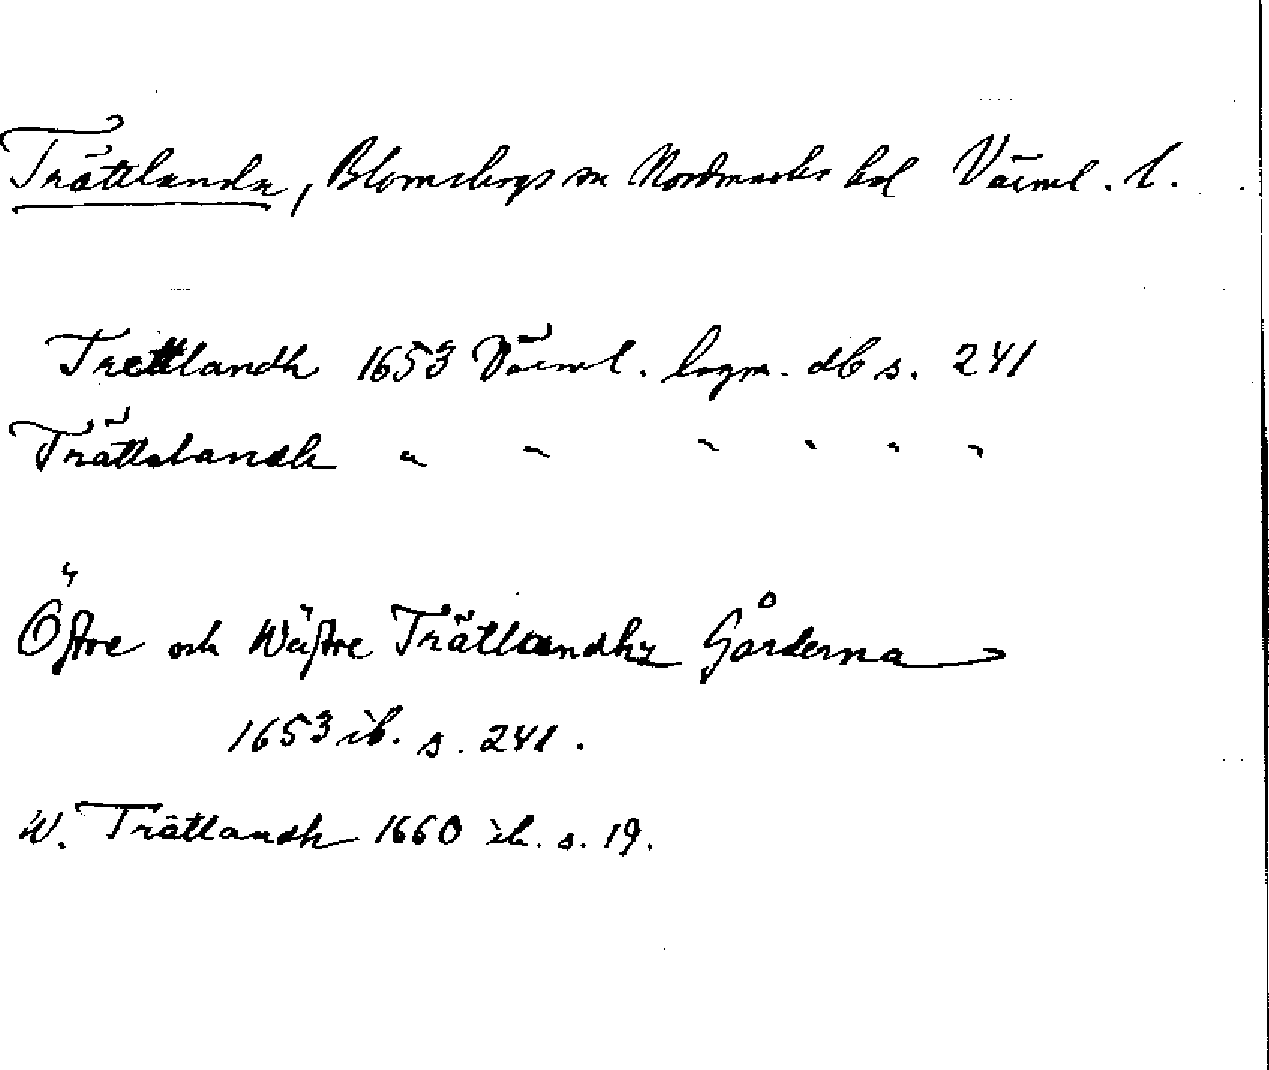 Trättlanda, Blomskogs sn Nordmarks hd Värml. l.
Trettlandh 1653 Värml. lagm. db s. 241
Trättslandh " " " " " "
Östre och Wästre Trätlandhz Gårderna
1653 ib. s. 241.
W. Trätlandh 1660 ib. s. 19.